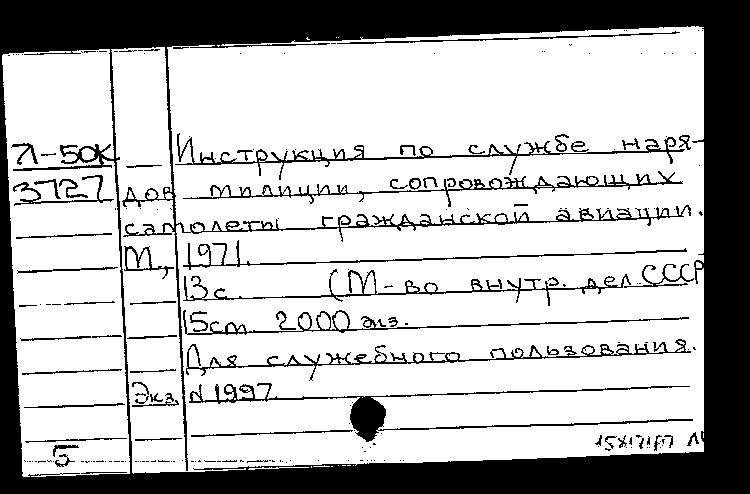 Л-50К Инструкция по службе наря-
3727 дов милиции, сопровождающих
самолеты гражданской авиации.
М., 1971.
13с. (М-во внутр. дел СССР
15см 2000 экз.
Для служебного пользования.
Экз. N 1997
5